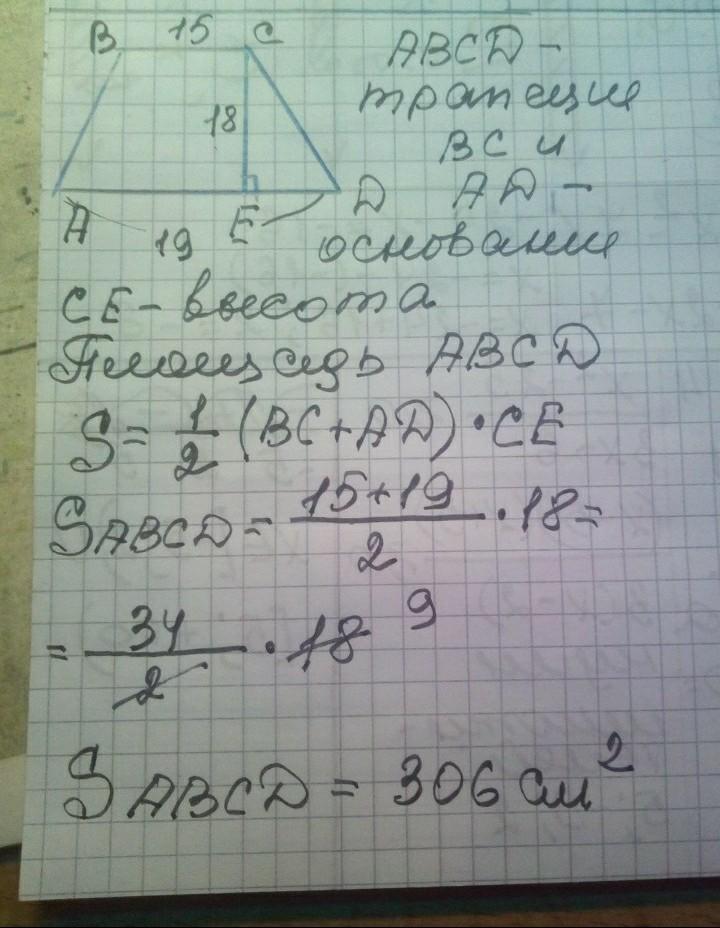 B 15 C
18
A 19 E D
ABCD –
трапеция
BC и
AD –
основание
CE – высота
Площадь ABCD
S = 1/2 (BC + AD) · CE
SABCD = (15+19)/2 · 18 =
= 34/2 · 18 9
SABCD = 306 см²